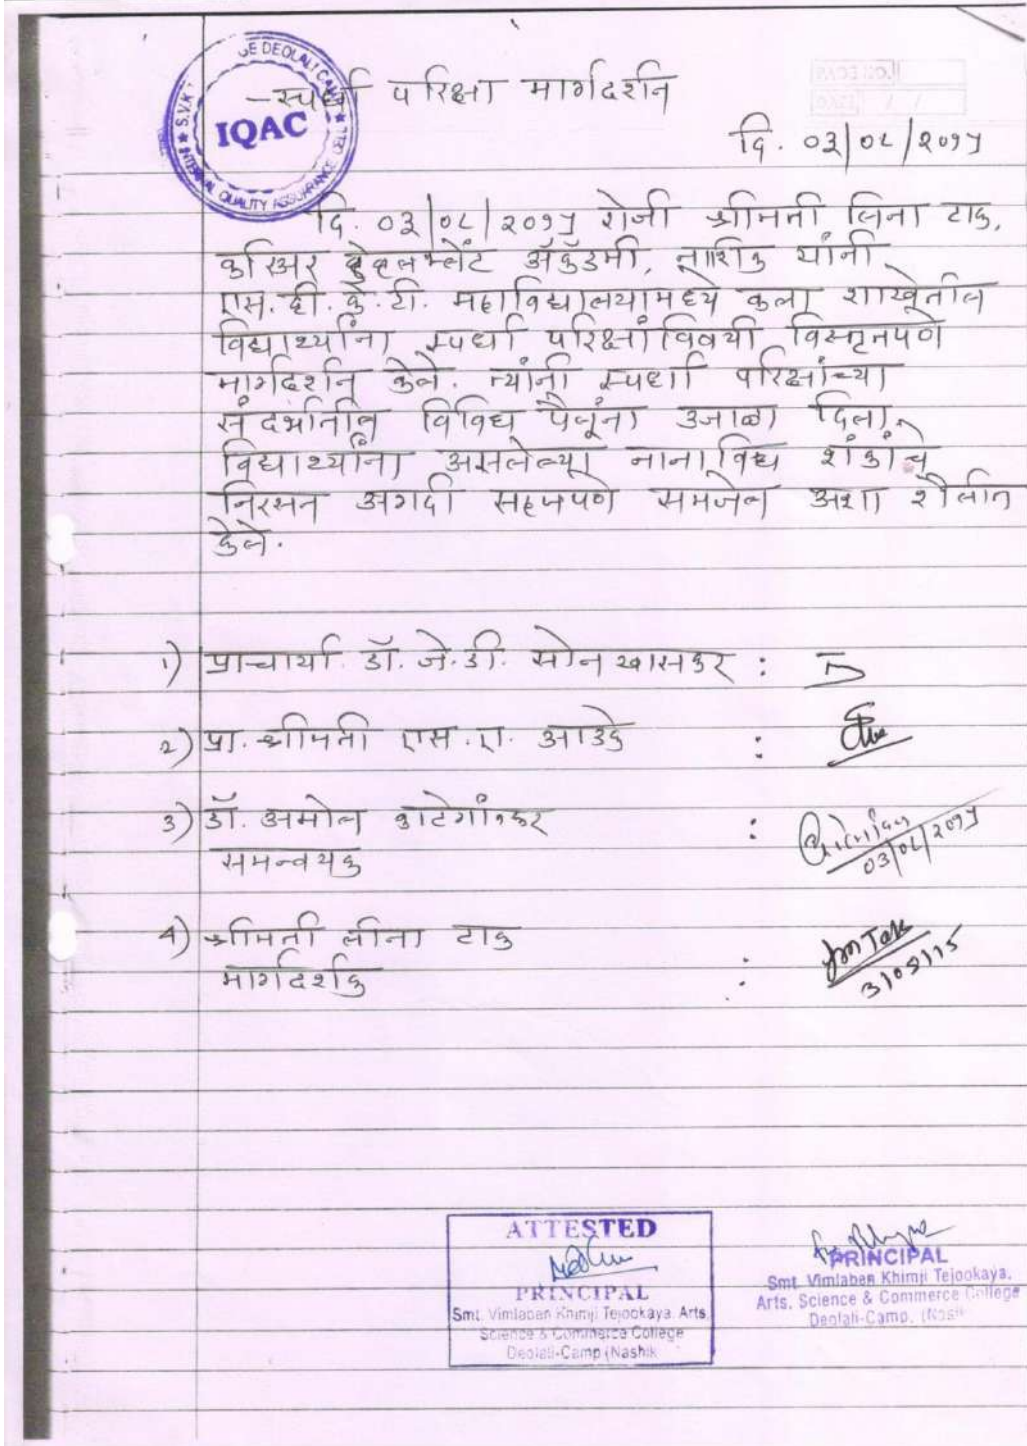 GE DEOLALI CAMP
S.V.K.
IQAC
INTERNAL QUALITY ASSURANCE CELL
- स्पर्धा परिक्षा मार्गदर्शन
दि. ०३/०८/२०१५
दि. ०३/०८/२०१५ रोजी श्रीमती लिना टाक,
करिअर डेव्हलपमेंट अॅकॅडमी, नाशिक यांनी
एस. व्ही. के. टी. महाविद्यालयामध्ये कला शाखेतील
विद्यार्थ्यांना स्पर्धा परिक्षांविषयी विस्तृतपणे
मार्गदर्शन केले. त्यांनी स्पर्धा परिक्षांच्या
संदर्भातील विविध पैलूंना उजाळा दिला.
विद्यार्थ्यांना असलेल्या नानाविध शंकांचे
निरसन अगदी सहजपणे समजेल अशा शैलीत
केले.
१) प्राचार्या. डॉ. जे. डी. सोनखासकर :
२) प्रा. श्रीमती एस. ए. आडके :
३) डॉ. अमोल काटेगांवकर :
समन्वयक
०३/०८/२०१५
४) श्रीमती लीना टाक
मार्गदर्शक :
Tak
3/08/15
ATTESTED
PRINCIPAL
Smt. Vimlaben Khimji Tejookaya Arts,
Science & Commerce College
Deolali-Camp (Nashik
PRINCIPAL
Smt. Vimlaben Khimji Tejookaya,
Arts, Science & Commerce College
Deolali-Camp, (Nashi